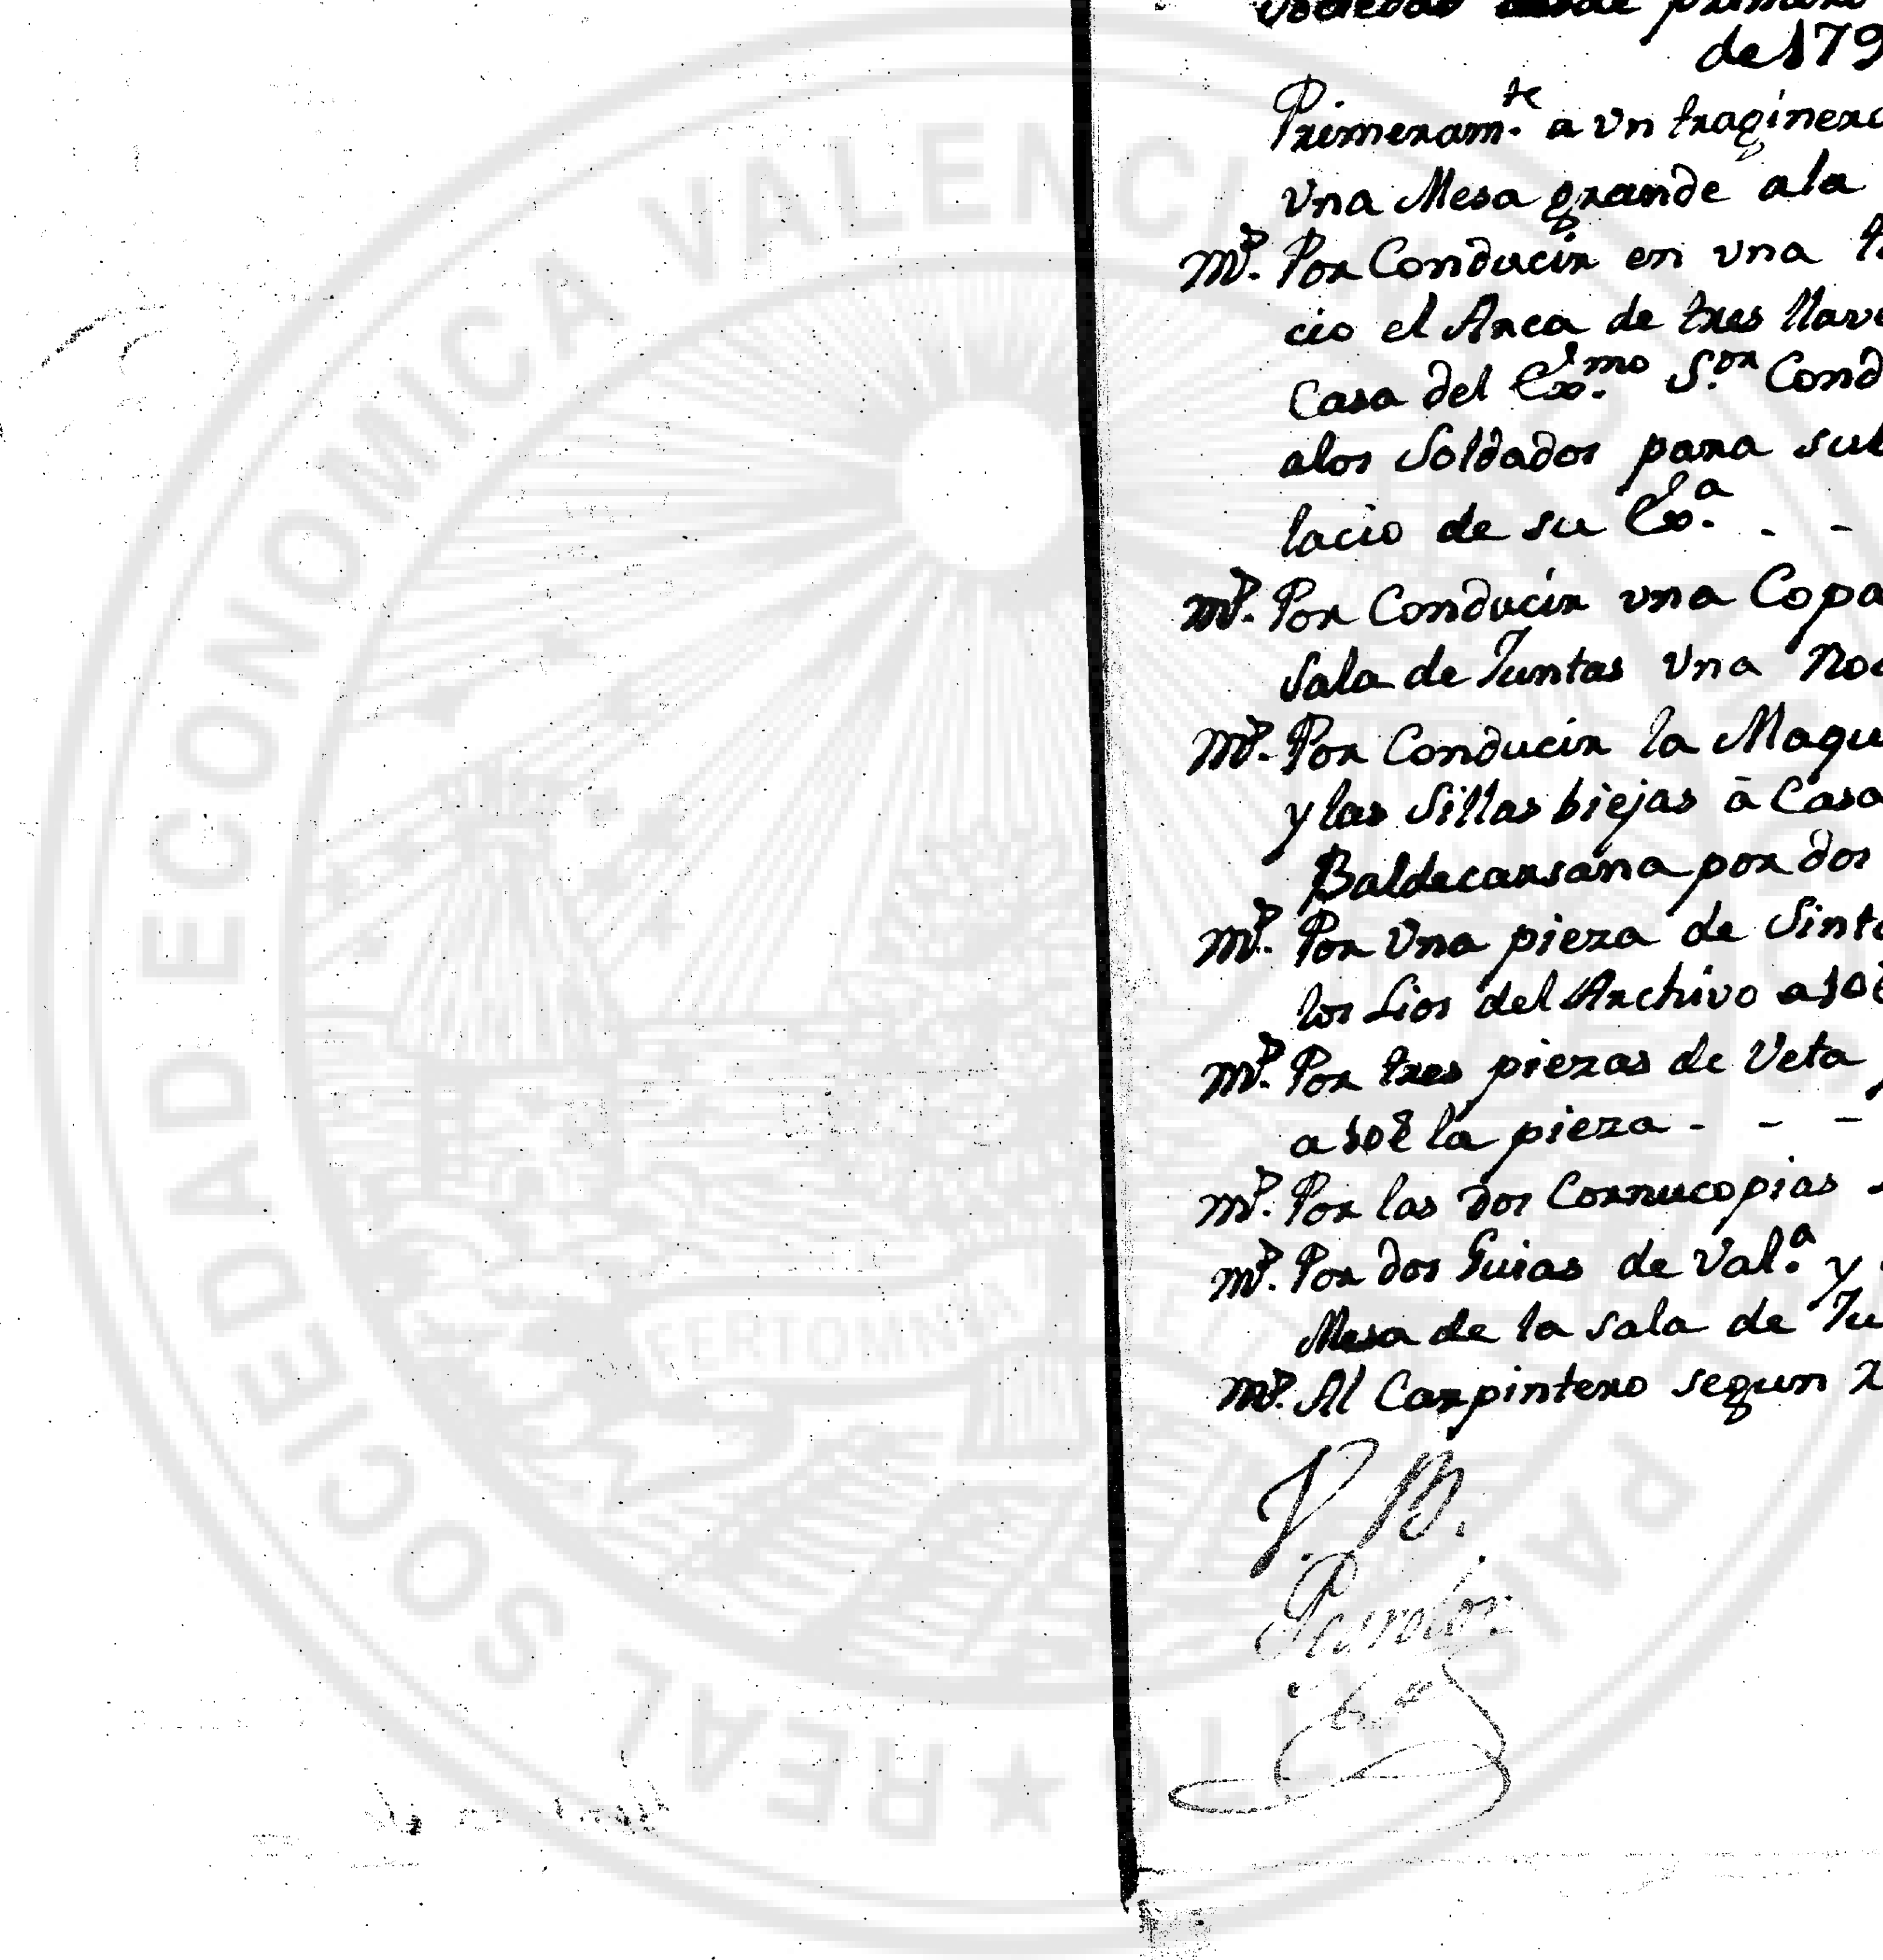 Sociedad desde primero
de 179
Primeram.te a Vn traginero
Vna Mesa grande ala
mP. Por Conducir en vna
cio el Arca de tres llave
Casa del Ex.mo S.or Cond
alos Soldados para sub
lacio de su Ex.a . -
mP. Por Conducir vna Copa
Sala de Juntas Vna Noc
mP. Por Conducir la Maqu
y las Sillas biejas à Casa
Baldecarsana por dos
mP. Por Vna pieza de Sinta
los Lios del Archivo a
mP. Por tres piezas de Veta
a la pieza - - -
mP. Por las dos Cornucopias
mP. Por dos Guias de Val.a y
Mesa de la sala de Ju
mP. Al Carpintero segun
V. B.
REAL SOCIEDAD ECONOMICA VALENCI
PAIS